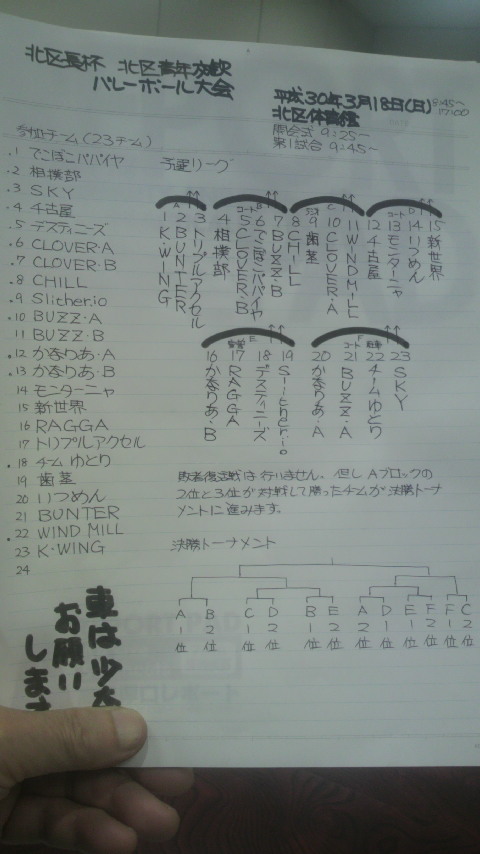 北区長杯 北区青年
バレーボール大会
平成30年3月18日(日) 8:45〜17:00
北区体育館
開会式 9:25〜
第1試合 9:45〜
参加チーム(23チーム)
.1 でこぼこパパイヤ
.2 相撲部
.3 SKY
.4 千古屋
.5 デスティニーズ
.6 CLOVER・A
.7 CLOVER・B
.8 CHILL
.9 Slither.io
.10 BUZZ・A
11 BUZZ・B
.12 かなりあ・A
.13 かなりあ・B
14 モンターニャ
15 新世界
16 RAGGA
17 トリプルアクセル
.18 チームゆとり
19 歯茎
20 いつめん
21 BUNTER
.22 WIND MILL
23 K・WING
24
予選リーグ
A
1 K・WING
2 BUNTER
3 トリプルアクセル
コート B
4 相撲部
5 CLOVER・B
6 でこぼこパパイヤ
7 BUZZ・B
C
8 CHILL
9 歯茎
10 CLOVER・A
11 WINDMILL
コート D
12 千古屋
13 モンターニャ
14 いつめん
15 新世界
E
16 かなりあ・B
17 RAGGA
18 デスティニーズ
19 Slither.io
コート F
20 かなりあ・A
21 BUZZ・A
22 チームゆとり
23 SKY
敗者復活戦は行いません。但しAブロックの
2位と3位が対戦して勝ったチームが決勝トーナ
メントに進みます。
決勝トーナメント
A1位 B2位 C1位 D2位 B1位 E2位 A2位 D1位 E1位 F2位 F1位 C2位
車は少
お願い
します